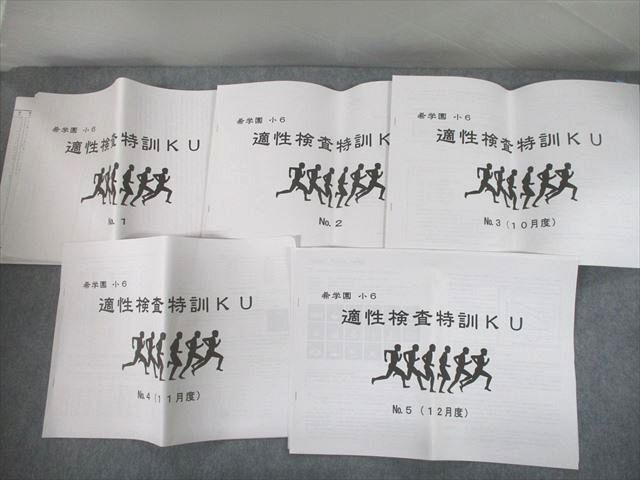 希学園 小6
適性検査特訓KU
No. 1
希学園 小6
適性検査特訓KU
No. 2
希学園 小6
適性検査特訓KU
No. 3 (10月度)
希学園 小6
適性検査特訓KU
No. 4 (11月度)
希学園 小6
適性検査特訓KU
No. 5 (12月度)